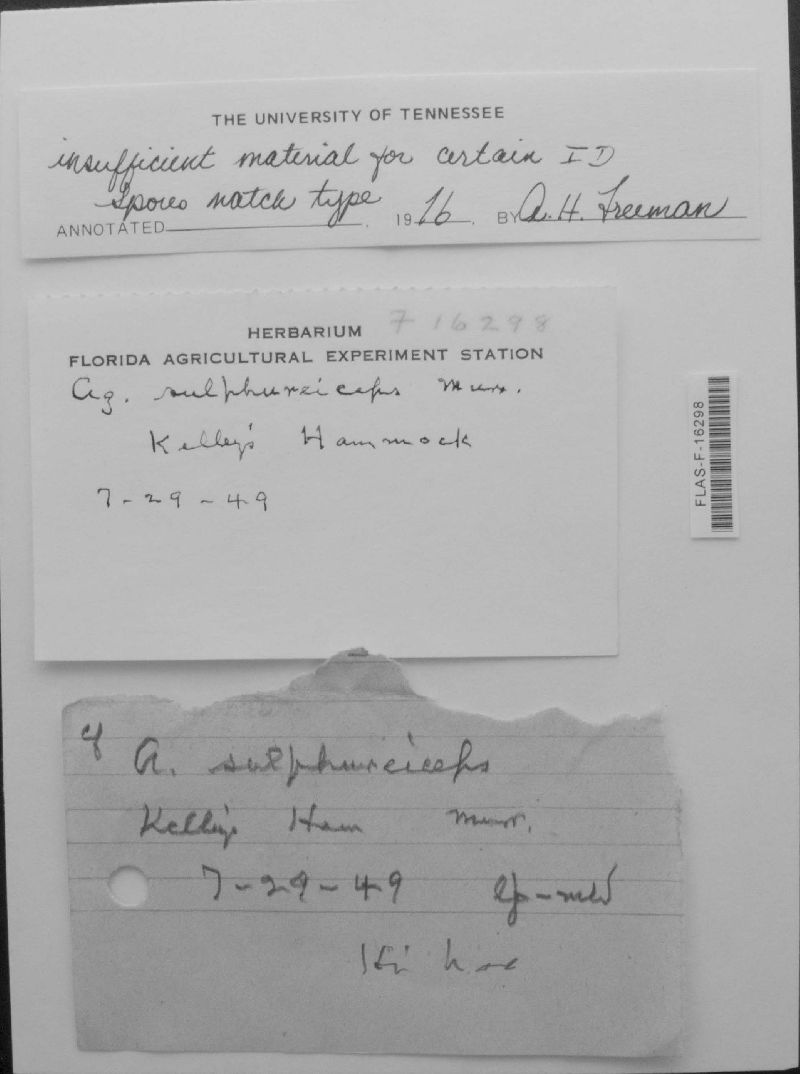 THE UNIVERSITY OF TENNESSEE
insufficient material for certain ID
Spores match type
ANNOTATED 1976 BY A. H. Freeman
F 16298
HERBARIUM
FLORIDA AGRICULTURAL EXPERIMENT STATION
Ag. sulphureiceps Murr.
Kelley's Hammock
7-29-49
FLAS-F-16298
cf A. sulphureiceps
Kelley's Ham Murr.
7-29-49